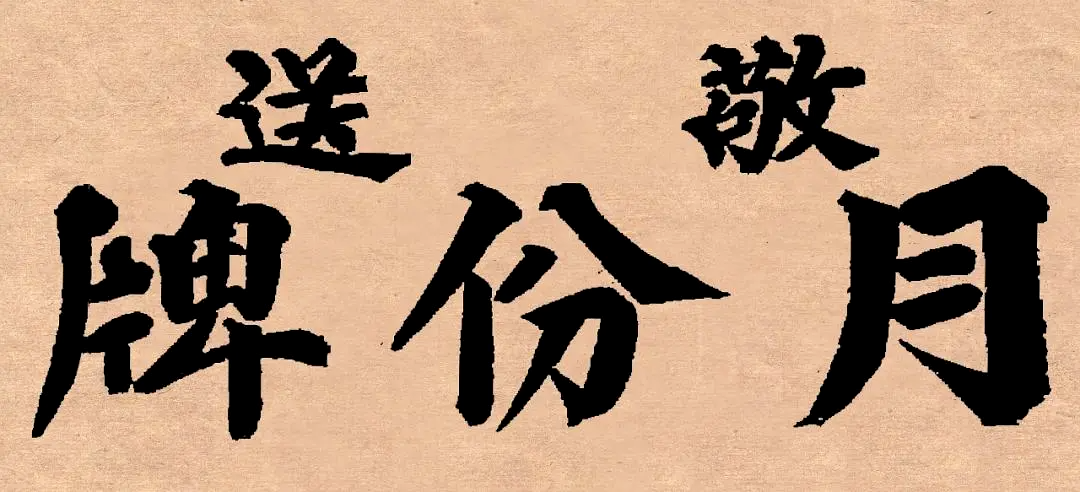 敬送
月份牌